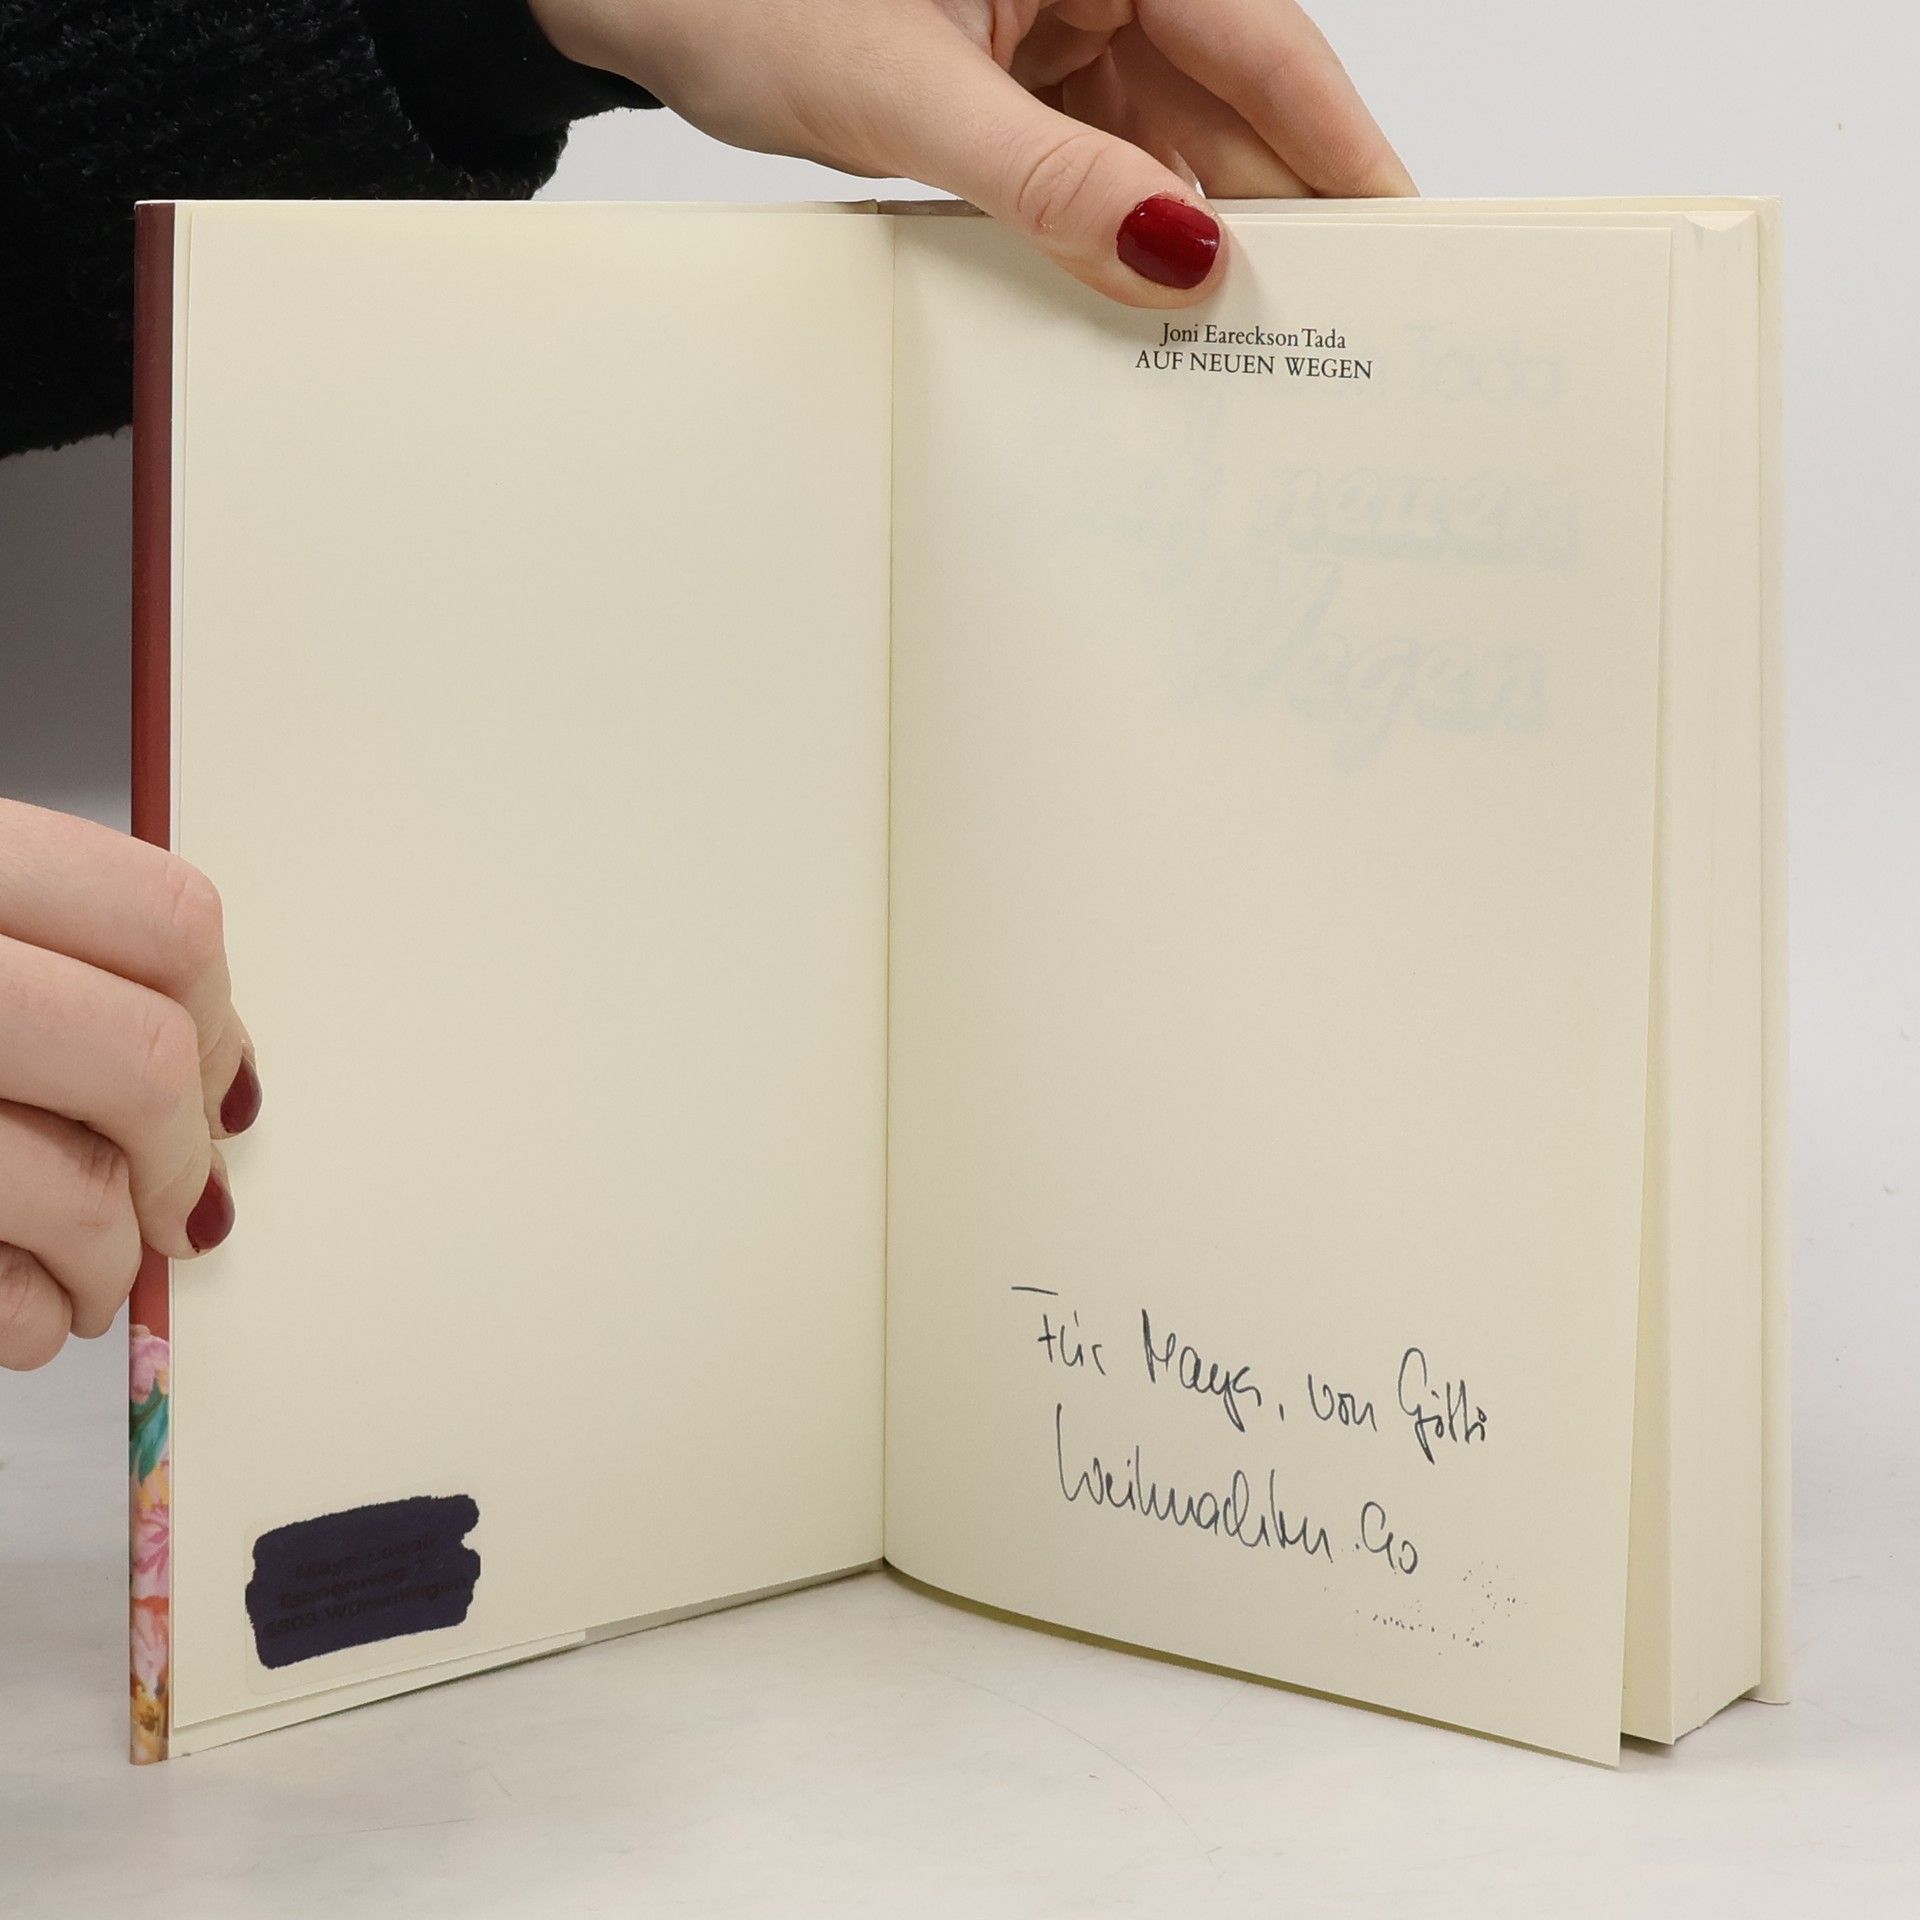 Joni Eareckson Tada
AUF NEUEN WEGEN
Für Maya, von Götti
Weihnachten 90